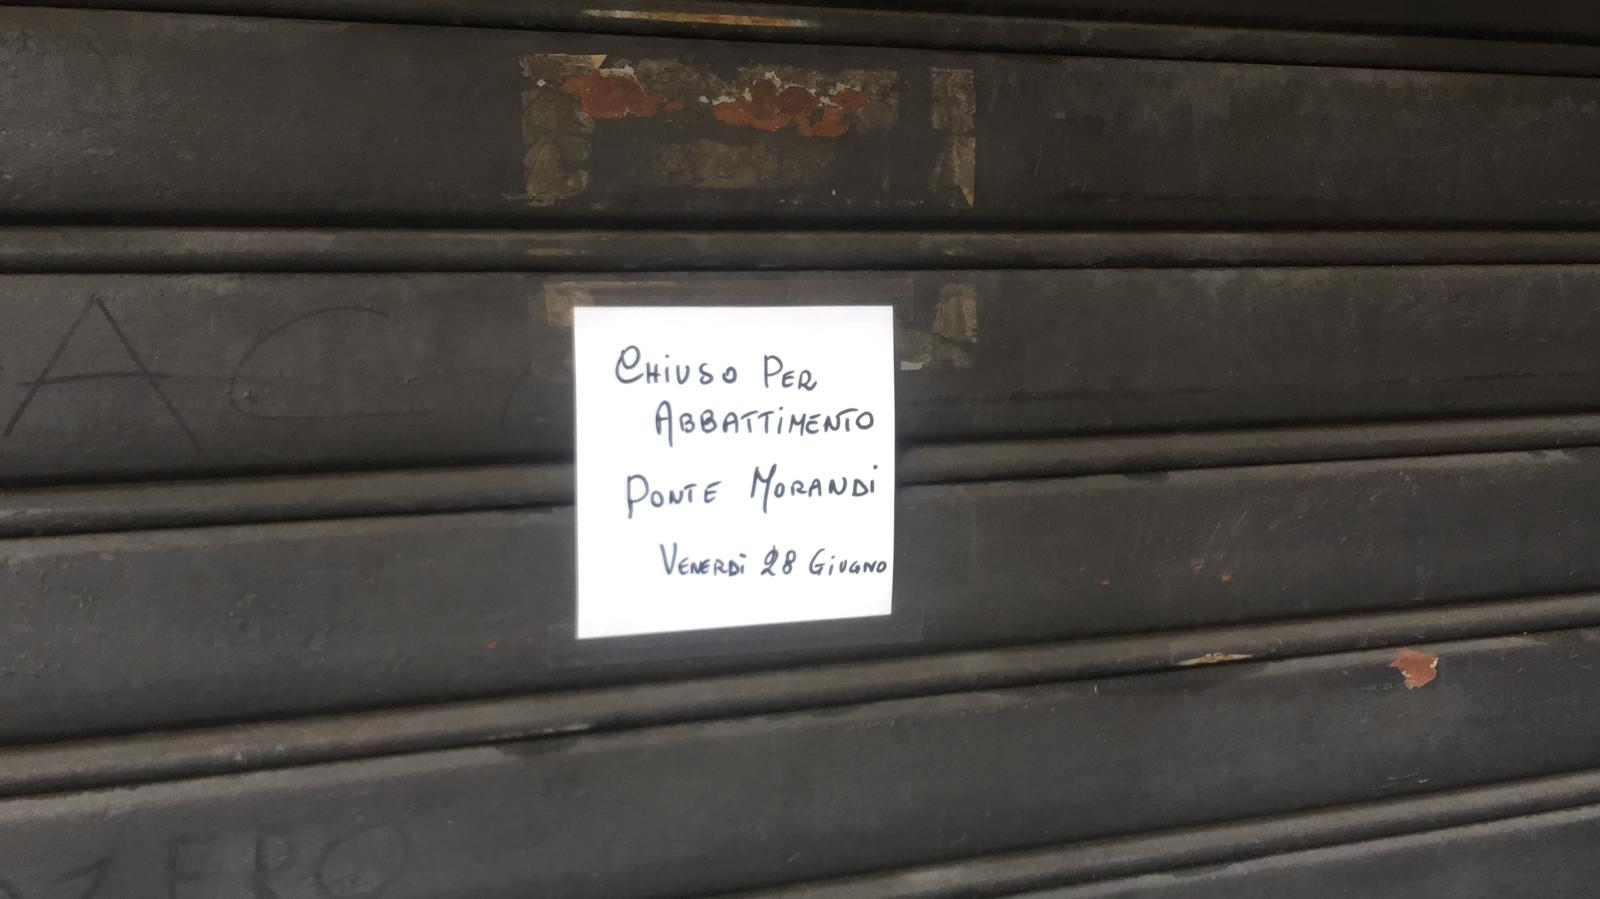 CHiUSO PER
ABBATTiMENTO
PONTE MORANDi
VENERDì 28 GiUGNO
AC
ZERO